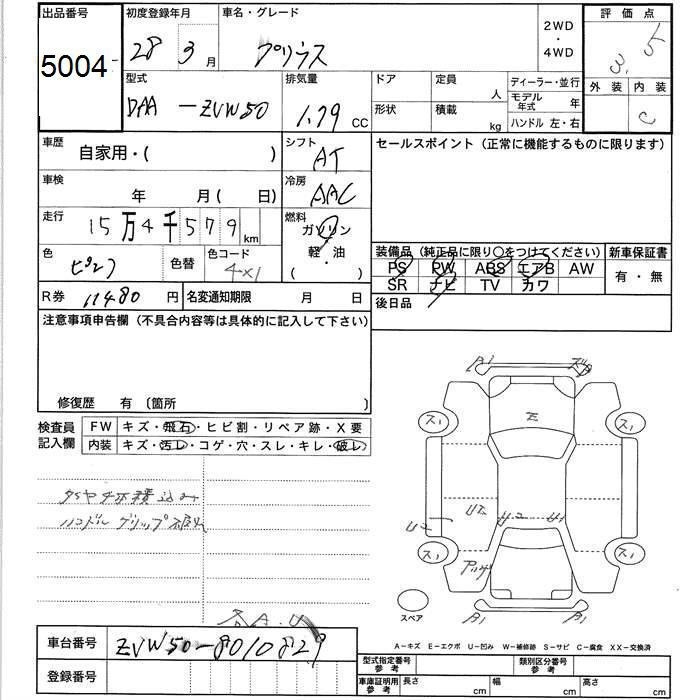 出品番号
5004
初度登録年月
28 3 月
車名・グレード
プリウス
2WD
・
4WD
評価点
3.5
外装 内装
C
型式
DAA-ZVW50
排気量
1.79 cc
ドア
形状
定員 人
積載 kg
ディーラー・並行
モデル年式 年
ハンドル 左・右
車歴
自家用・( )
シフト
AT
セールスポイント (正常に機能するものに限ります)
車検
年 月( 日)
冷房
AAC
走行
15万4千579 km
燃料
ガソリン
軽・油
( ・ )
色
色替
色コード
4X1
装備品 (純正品に限り○をつけてください)
PS PW ABS エアB AW
SR ナビ TV カワ
新車保証書
有・無
R券 11480 円
名変通知期限 月 日
後日品
注意事項申告欄 (不具合内容等は具体的に記入して下さい)
修復歴 有 〔箇所 〕
検査員
記入欄
FW キズ・飛石・ヒビ割・リペア跡・X要
内装 キズ・汚レ・コゲ・穴・スレ・キレ・破レ
タイヤ4本積込み
ハンドルグリップ破れ
各A.U
β1
ス1
E
ス1
U2
U2
U2
U1
ス1
ス1
スペア
β1
β1
A-キズ E-エクボ U-凹み W-補修跡 S-サビ C-腐食 XX-交換済
車台番号
ZVW50-8010829
登録番号
型式指定番号
参考
類別区分番号
参考
車庫証明用
参考
長さ cm
幅 cm
高さ cm